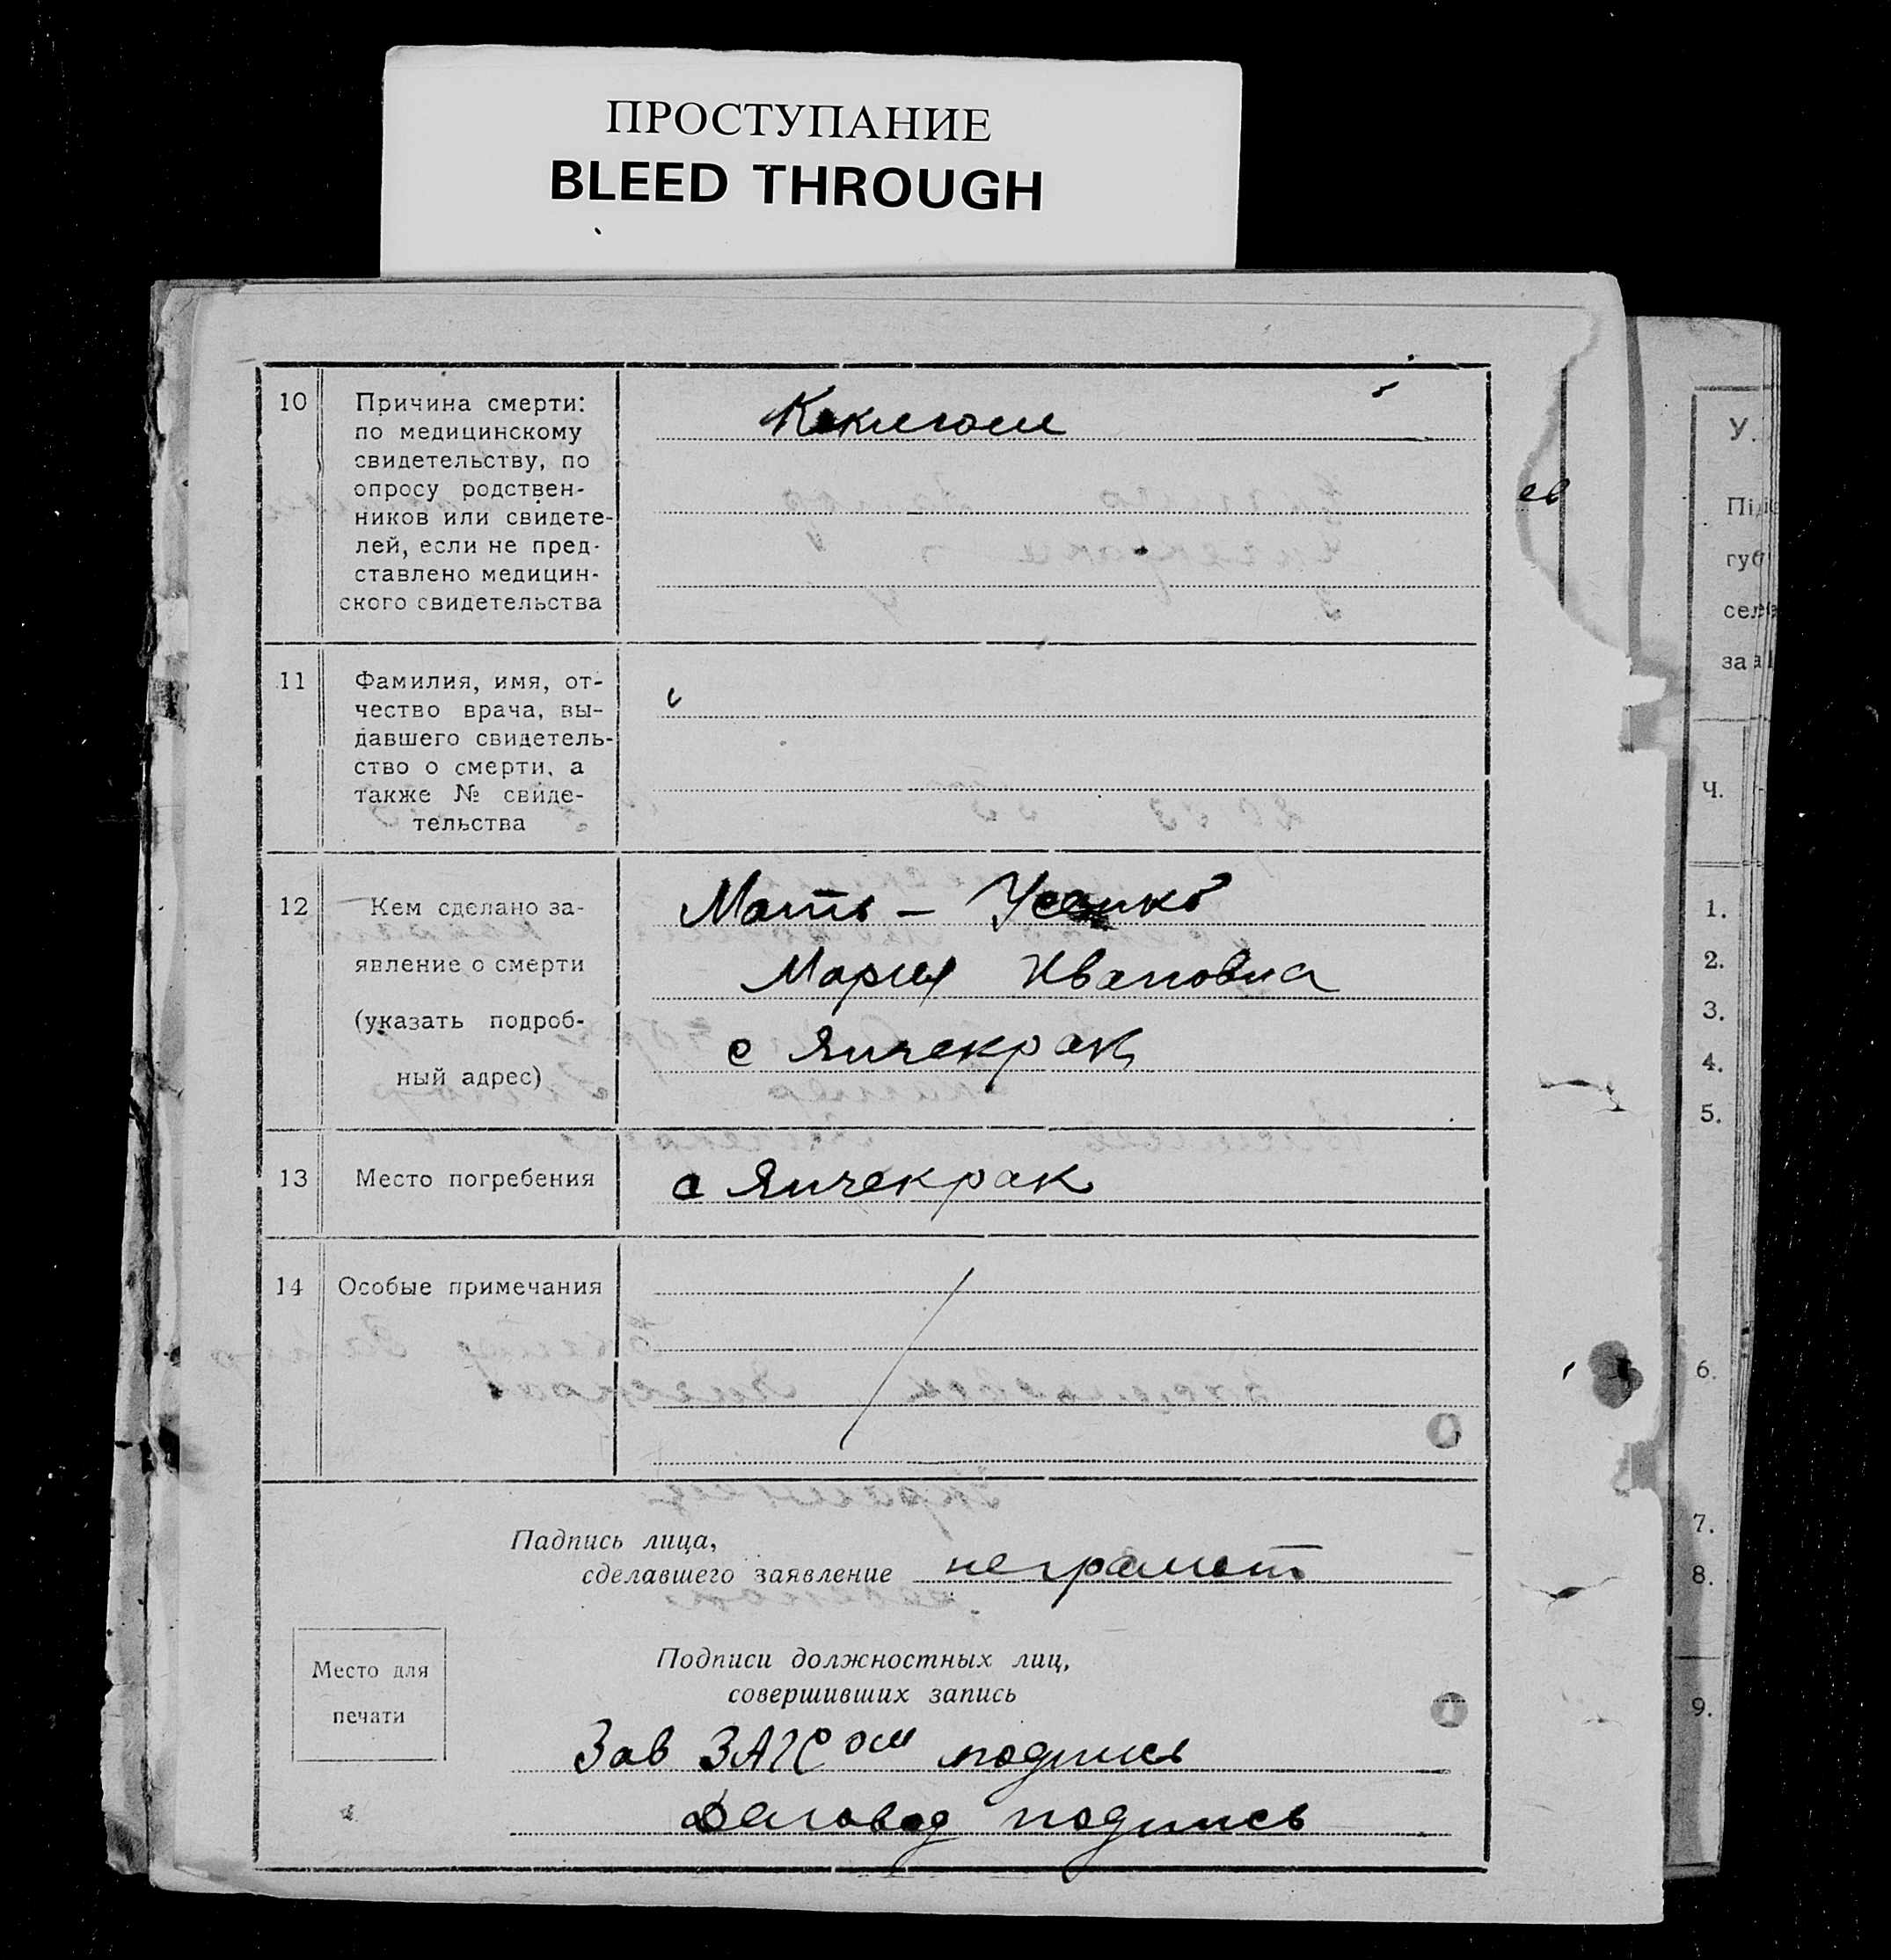 ПРОСТУПАНИЕ
BLEED THROUGH
10
Причина смерти:
по медицинскому
свидетельству, по
опросу родствен-
ников или свидете-
лей, если не пред-
ставлено медицин-
ского свидетельства
11
Фамилия, имя, от-
чество врача, вы-
давшего свидетель-
ство о смерти, а
также № свиде-
тельства
12
Кем сделано за-
явление о смерти
(указать подроб-
ный адрес)
Мать - Усенко
Мария Ивановна
с Янчекрак
13 Место погребения
с Янчекрак
14 Особые примечания
Падпись лица,
сделавшего заявление неграмот
Место для
печати
Подписи должностных лиц,
совершивших запись
Зав ЗАГСом подпись
Деловод подпись
ев
У.
Під
губ
сел
за
Ч.
1.
2.
3.
4.
5.
6.
7.
8.
9.